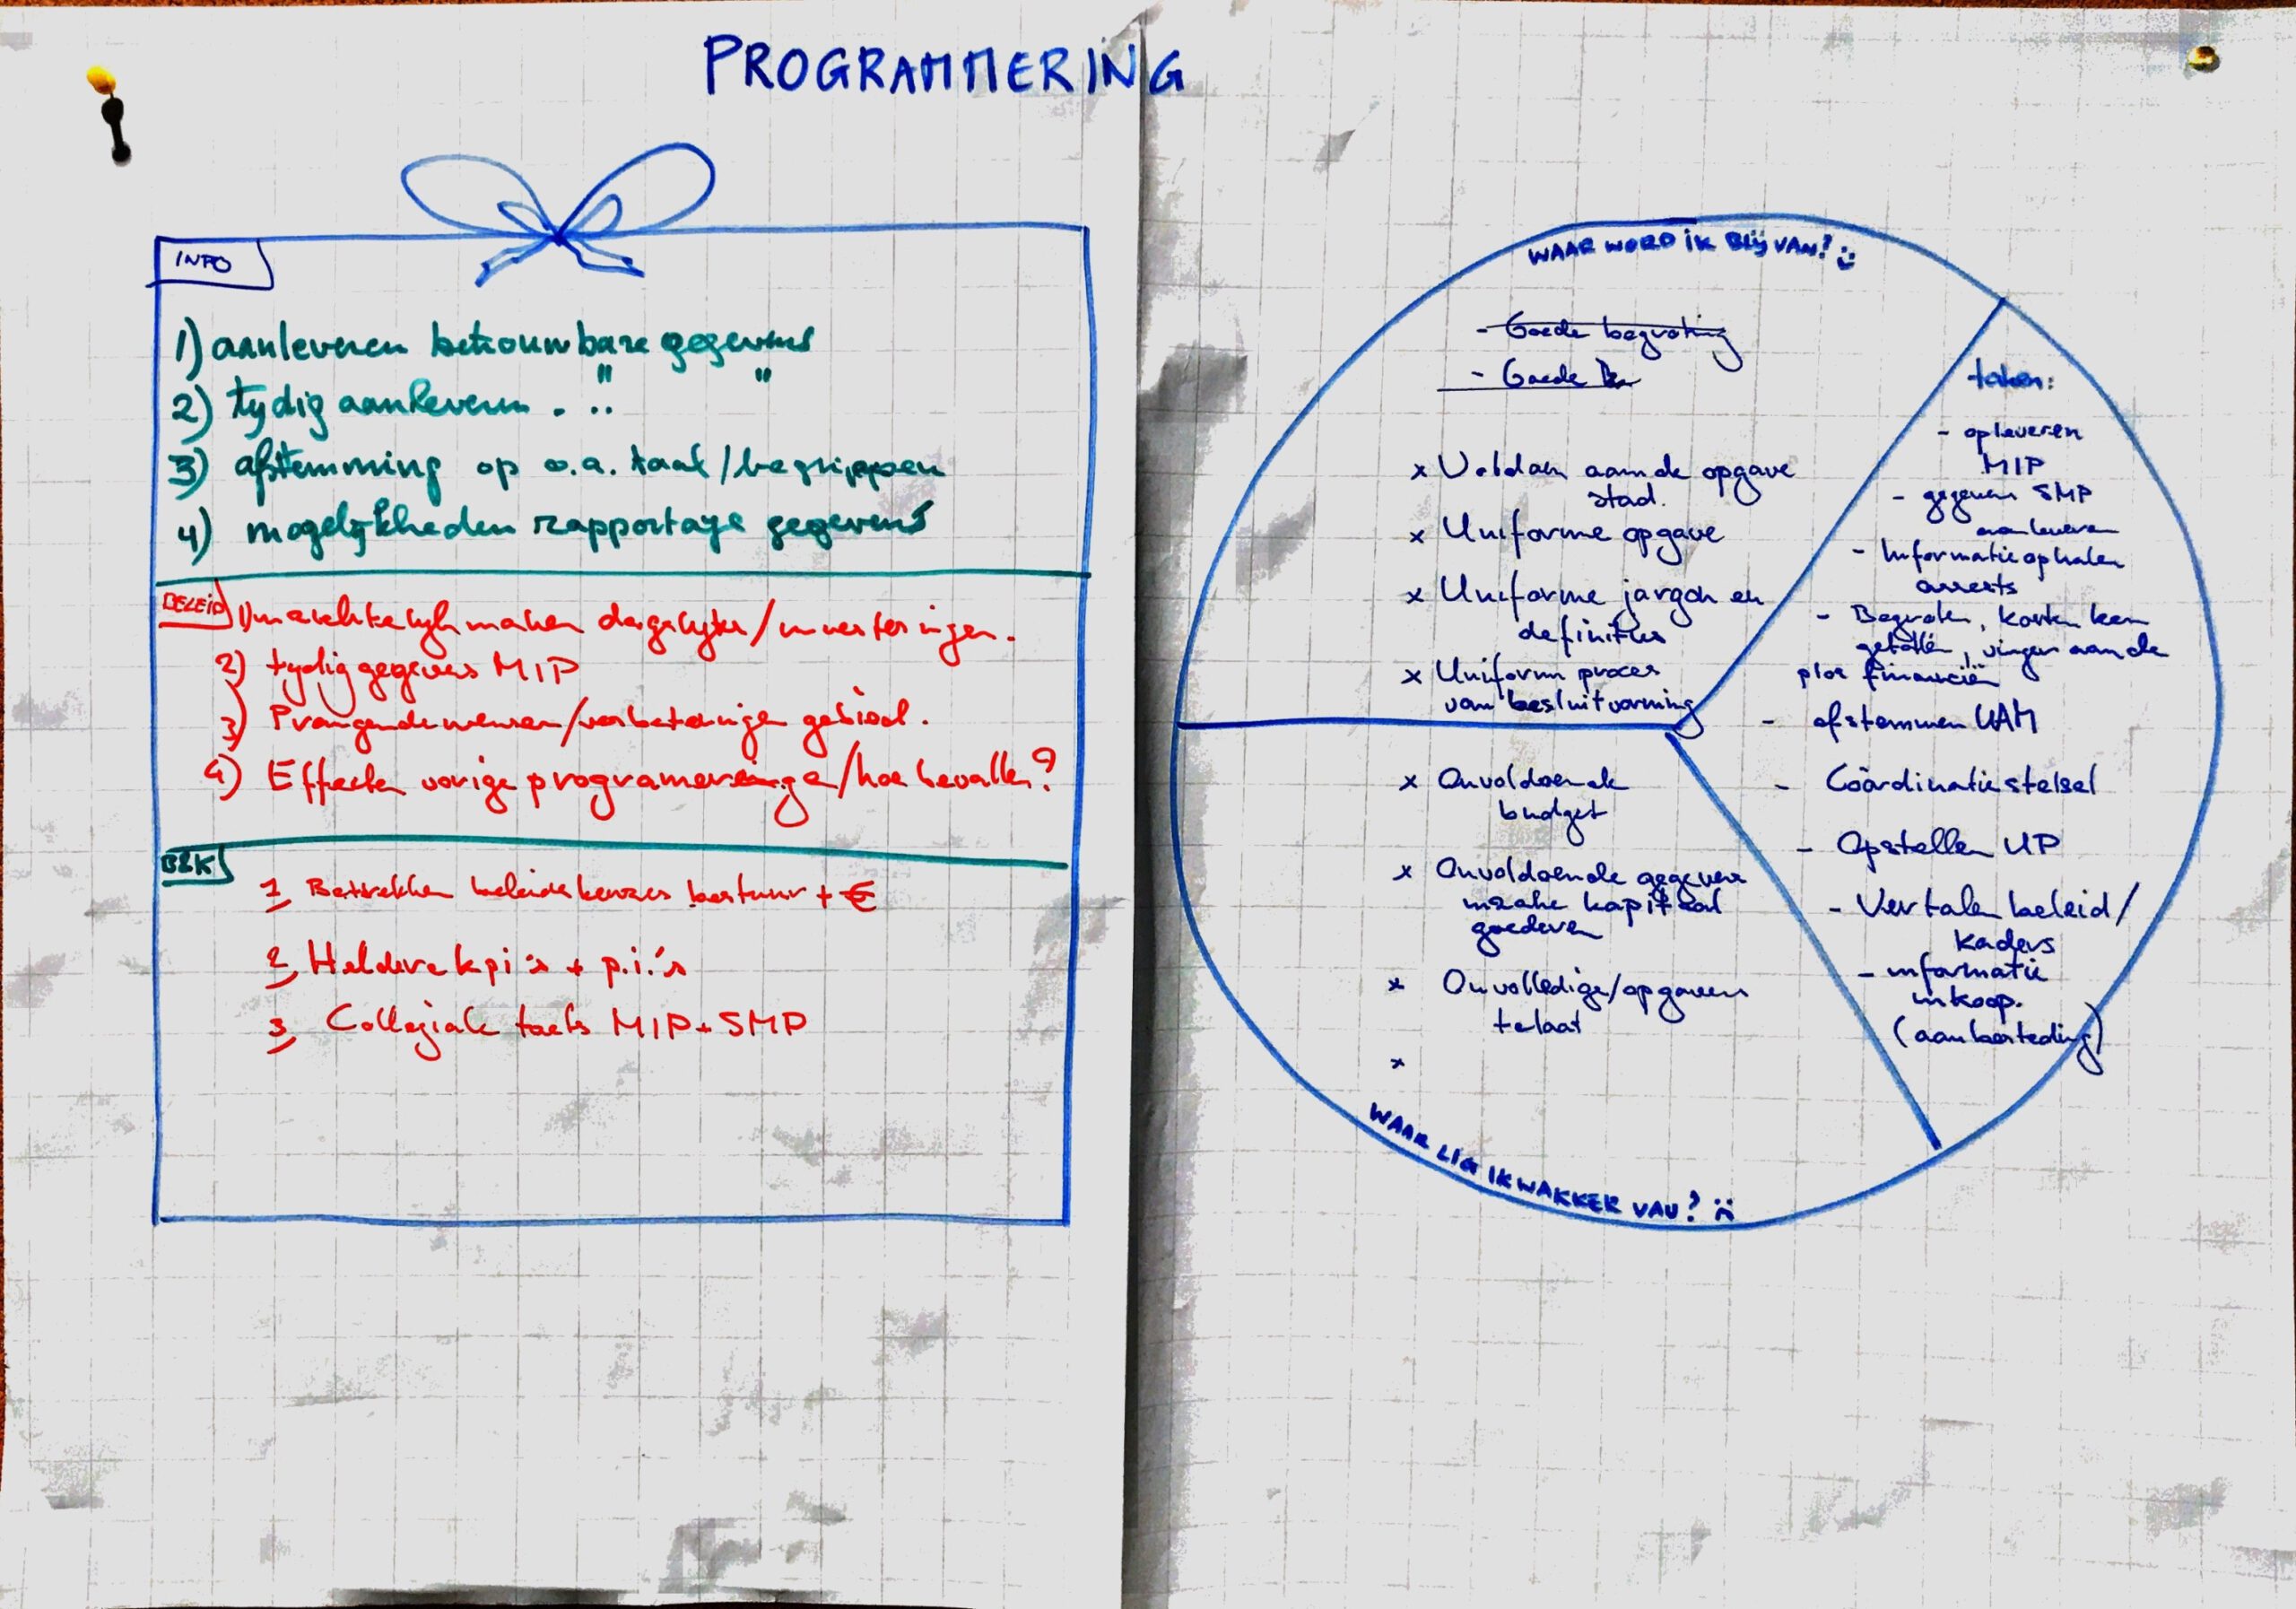 PROGRAMMERING
INFO
1) aanleveren betrouwbare gegevens
2) tydig aanleveren . .. " "
3) afstemming op o.a. taal / begrippen
4) mogelijkheden rapportage gegevens
BELEID
1) inzichtelyk maken dagelyks / investeringen.
2) tydig gegevens MIP
3) Prangende wensen/verbeteringen gebied.
4) Effecten vorige programeringen/hoe bevallen?
1 Betrekken beleidskeuzes bestuur + €
2 Heldere kpi's + p.i.'s
3 Collegiale toets MIP + SMP
WAAR WORD IK BLIJ VAN?
- Goede begroting
- Goede
x Voldoen aan de opgave
stad.
x Uniforme opgave
x Uniforme jargon en
definities
x Uniform proces
van besluitvorming
taken:
- opleveren
MIP
- gegevens SMP
aanleveren
- Informatie ophalen
assets
- Begroten, kosten ken
getallen, vinger aan de
pols financiën
- afstemmen UAM
- Coördinatie stelsel
- Opstellen UP
- Vertalen beleid/
kaders
- informatie
inkoop.
(aanbesteding)
x Onvoldoende
budget
x Onvoldoende gegevens
inzake kapitaal
goederen
x Onvolledige/opgaven
te laat
x
WAAR LIG IK WAKKER VAN?